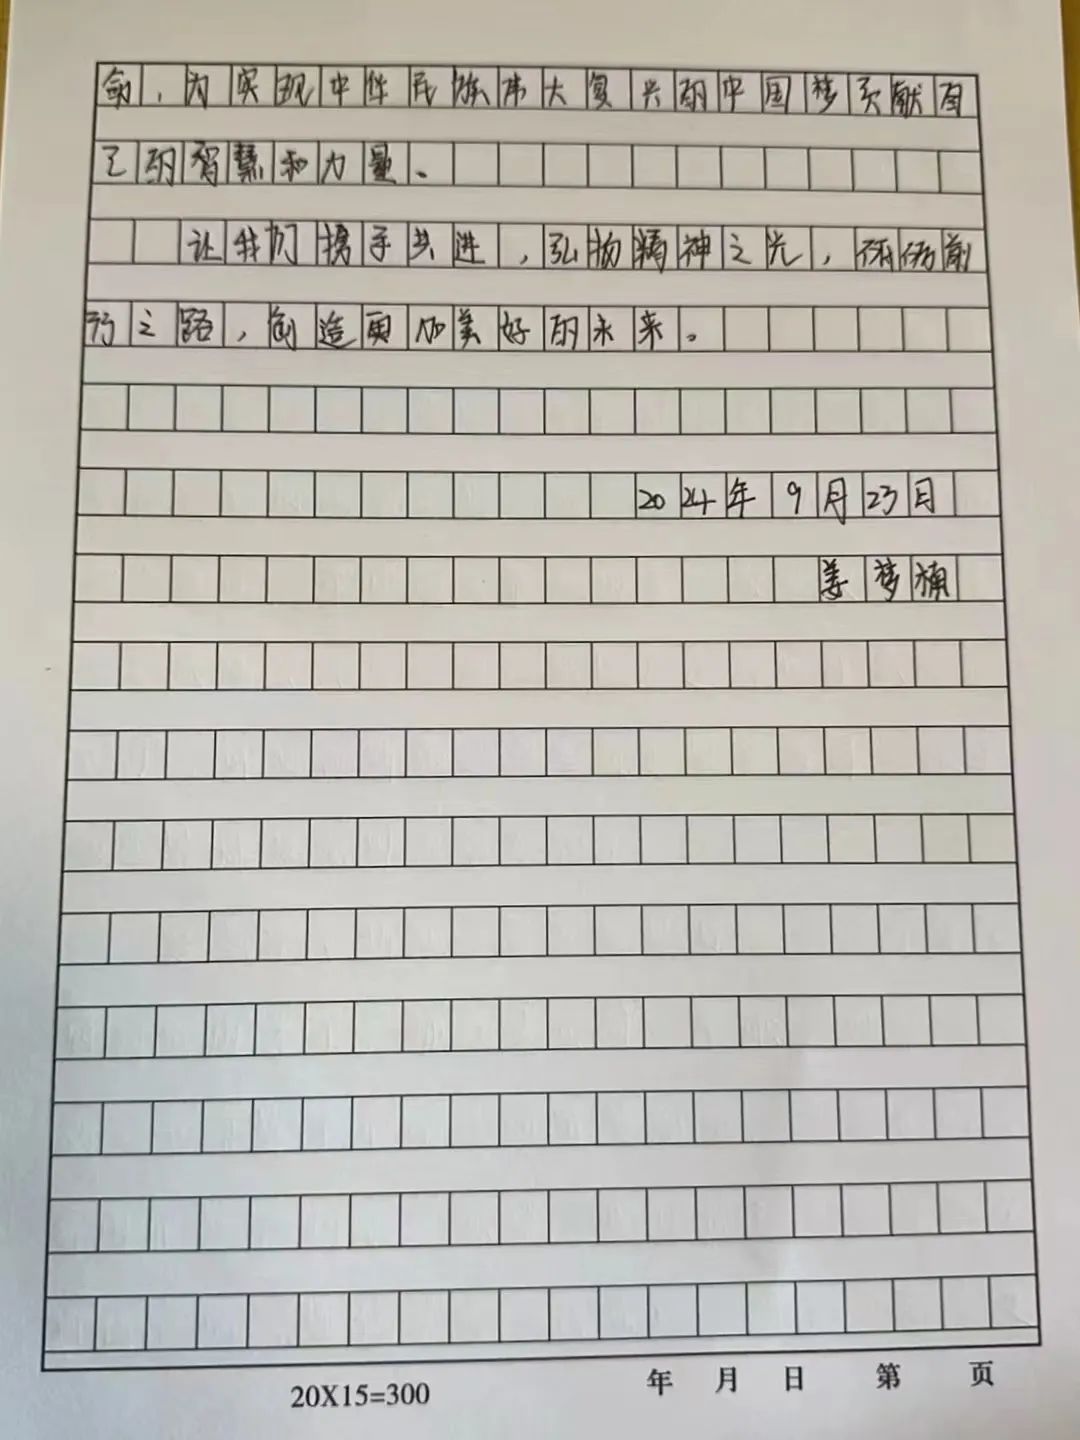 命，为实现中华民族伟大复兴的中国梦贡献自
己的智慧和力量。
让我们携手共进，弘扬精神之光，照亮前
行之路，创造更加美好的未来。
2024年9月23日
姜梦楠
20X15=300 年 月 日 第 页